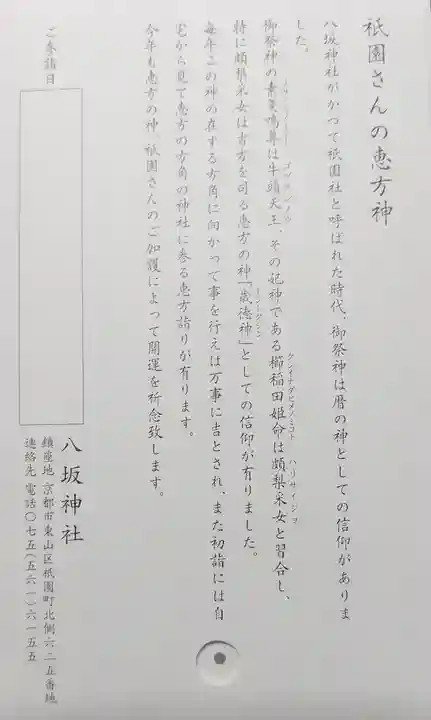 祇園さんの恵方神
八坂神社がかつて祇園社と呼ばれた時代、御祭神は暦の神としての信仰がありま
した。
御祭神の素戔嗚尊は牛頭天王、その妃神である櫛稲田姫命は頗梨采女と習合し、
特に頗梨采女は吉方を司る恵方の神「歳徳神」としての信仰が有りました。
毎年この神の在する方角に向かって事を行えば万事に吉とされ、また初詣には自
宅から見て恵方の方角の神社に参る恵方詣りが有ります。
今年も恵方の神、祇園さんのご加護によって開運を祈念致します。
ご参詣日
八坂神社
鎮座地 京都市東山区祇園町北側六二五番地
連絡先 電話〇七五(五六一)六一五五